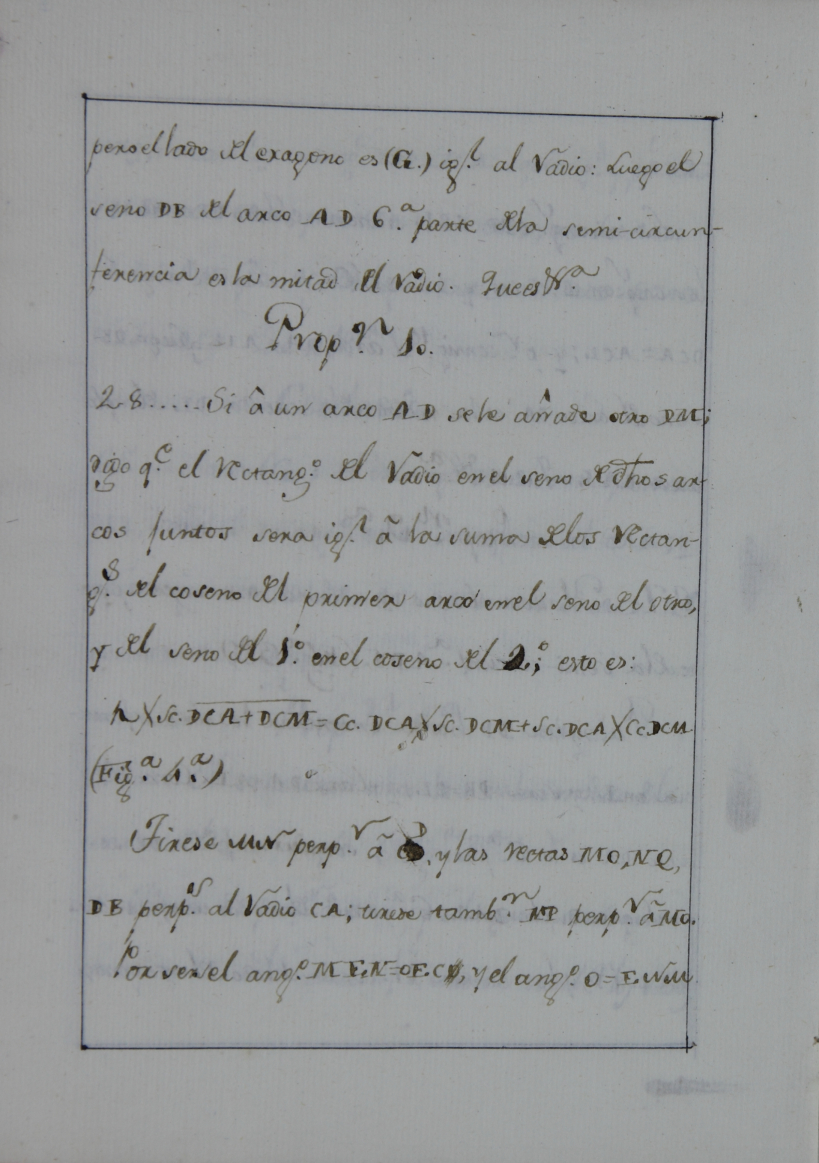 pero el lado del exagono es (G.) ig.l al Radio: Luego el
seno DB del arco AD 6.a parte dela semi-circun-
ferencia es la mitad del Radio. Que es &.a
Prop.n 1.
28..... Si â un arco AD sele añade otro DM;
digo q.e el Rectang.o del Radio en el seno de dhos ar-
cos juntos sera ig.l â la suma delos Rectan-
g.s del coseno del primer arco en el seno del otro,
y del seno del 1.o en el coseno del 2.o; esto es:
R X Sc. DCA + DCM = Cc. DCA X Sc. DCM + Sc. DCA X Cc DCM
(Fig.a 4.a)
Tirese MN perp.r â CD, y las rectas MO, NQ,
DB perp.s al Radio CA; tirese tamb.n NP perp.r â MO.
Por ser el ang.o MEN = OEC, y el ang.o O = ENM